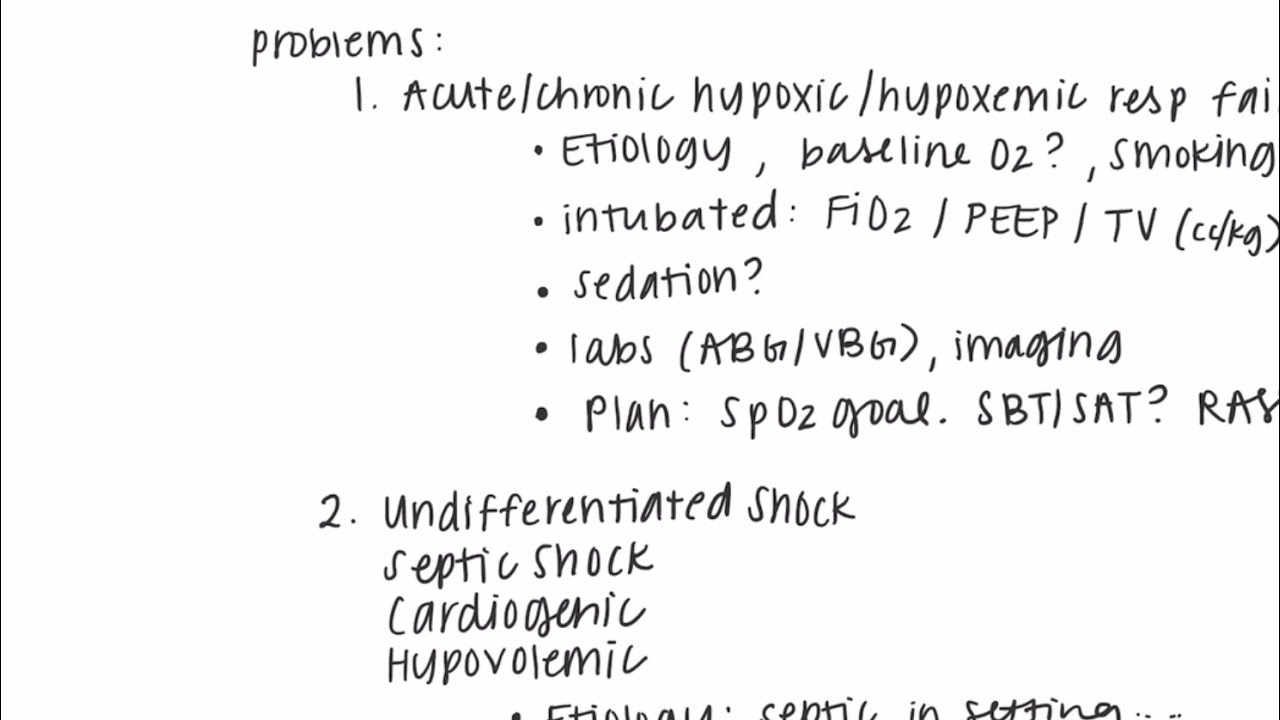 problems:
1. Acute/chronic hypoxic/hypoxemic resp fai
• Etiology, baseline O2?, smoking
• intubated: FiO2 / PEEP / TV (cc/kg)
• sedation?
• labs (ABG/VBG), imaging
• Plan: SpO2 goal. SBT/SAT? RAS
2. Undifferentiated shock
Septic shock
Cardiogenic
Hypovolemic
• Etiology: septic in setting....